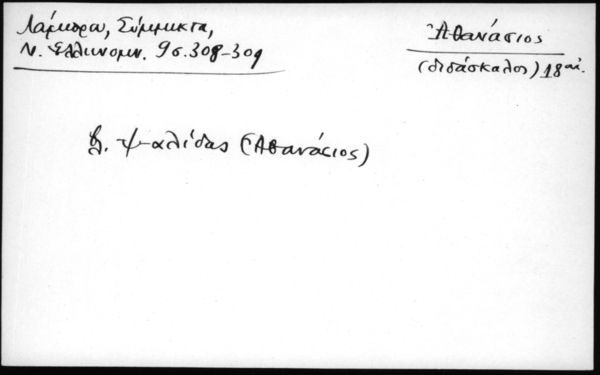 Λάμπρου, Σύμμικτα,
Ν. Ἑλληνομν. 9 σ. 308-309
Ἀθανάσιος
(διδάσκαλος) 18 αἰ.
βλ. Ψαλίδας (Ἀθανάσιος)